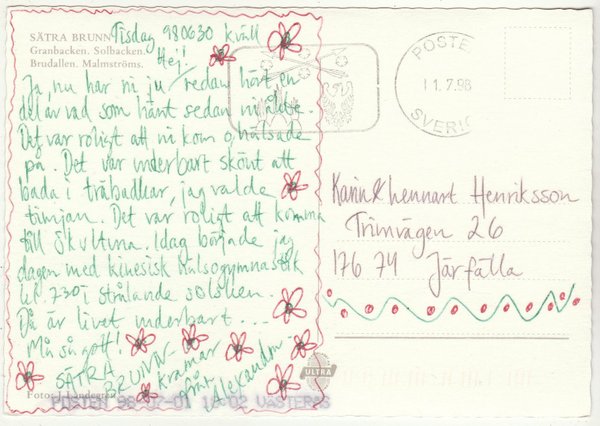 SÄTRA BRUNN
Granbacken. Solbacken.
Brudallen. Malmströms.
Tisdag 980630 kväll
Hej!
Ja, nu har ni ju redan hört en
del av vad som hänt sedan ni åkte.
Det var roligt att ni kom o hälsade
på. Det var underbart skönt att
bada i träbadkar, jag valde
timjan. Det var roligt att komma
till Skultuna. Idag började jag
dagen med kinesisk hälsogymnastik
kl 730 i strålande solsken.
Då är livet underbart...
Må så gott!
SÄTRA
BRUNN
kramar
från
Alexandra
Foto: J Landegren
ULTRA
POSTEN 98-07-01 18:02 VÄSTERÅS
POSTEN
1 1.7.98
SVERIGE
Karin & Lennart Henriksson
Trimvägen 26
176 74 Järfälla